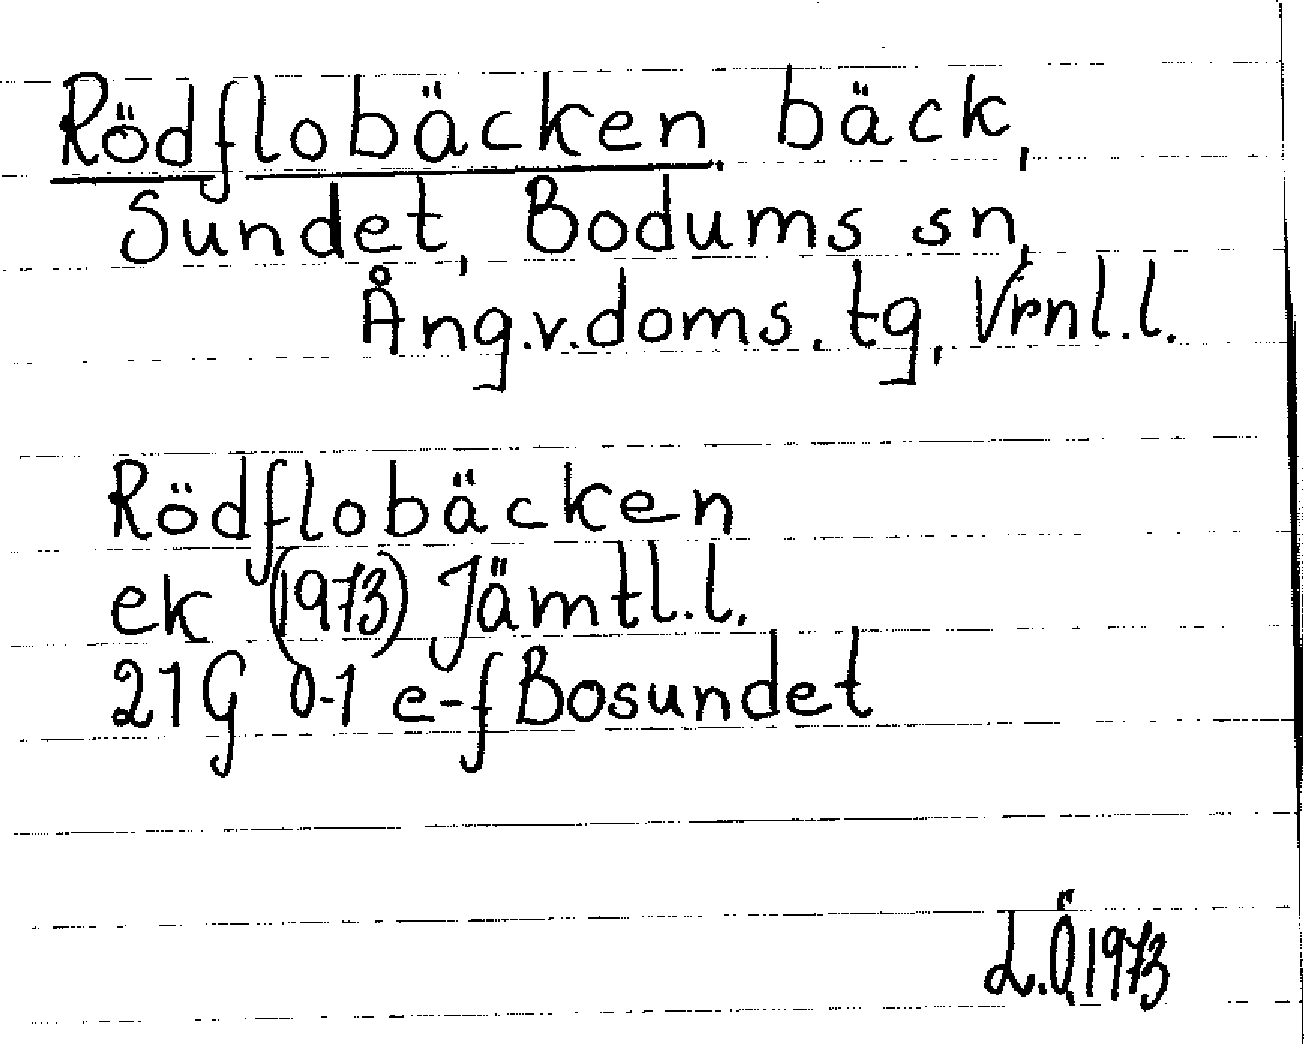 Rödflobäcken, bäck,
Sundet, Bodums sn,
Ång.v.doms.tg, Vrnl.l.
Rödflobäcken
ek (1973) Jämtl.l.
21G 0-1 e-f Bosundet
L.Ö.1973